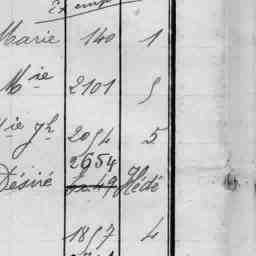 Marie 140 1
Mie 2101 5
Mie Jh 2054 5
2654
Désiré Hédé
1857 4